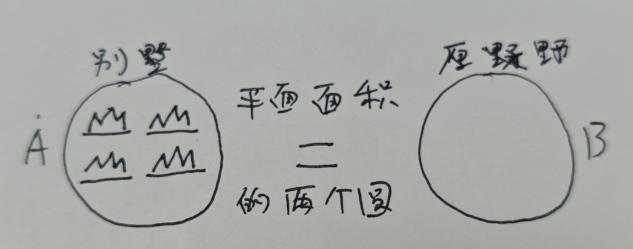 别墅
原野
平面面积
A
=
B
的两个圆